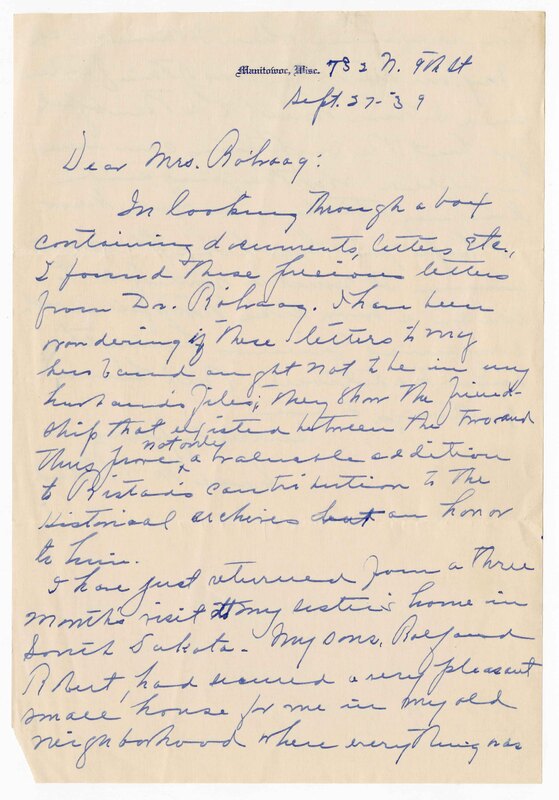 Manitowoc, Wisc. 732 N. 9th St
Sept. 27-39
Dear Mrs. Rölvaag:
In looking through a box
containing documents, letters etc.,
I found these precious letters
from Dr. Rölvaag. I have been
wondering if these letters to my
husband ought not to be in my
husband's files; they show the friend-
ship that existed between the two and
thus prove not only a valuable addition
to Ristad's contribution to the
Historical archives but an honor
to him.
I have just returned from a three
months visit to my sister's home in
South Dakota. My sons, Rolf and
Robert, had secured a very pleasant
small house for me in my old
neighborhood where everything was